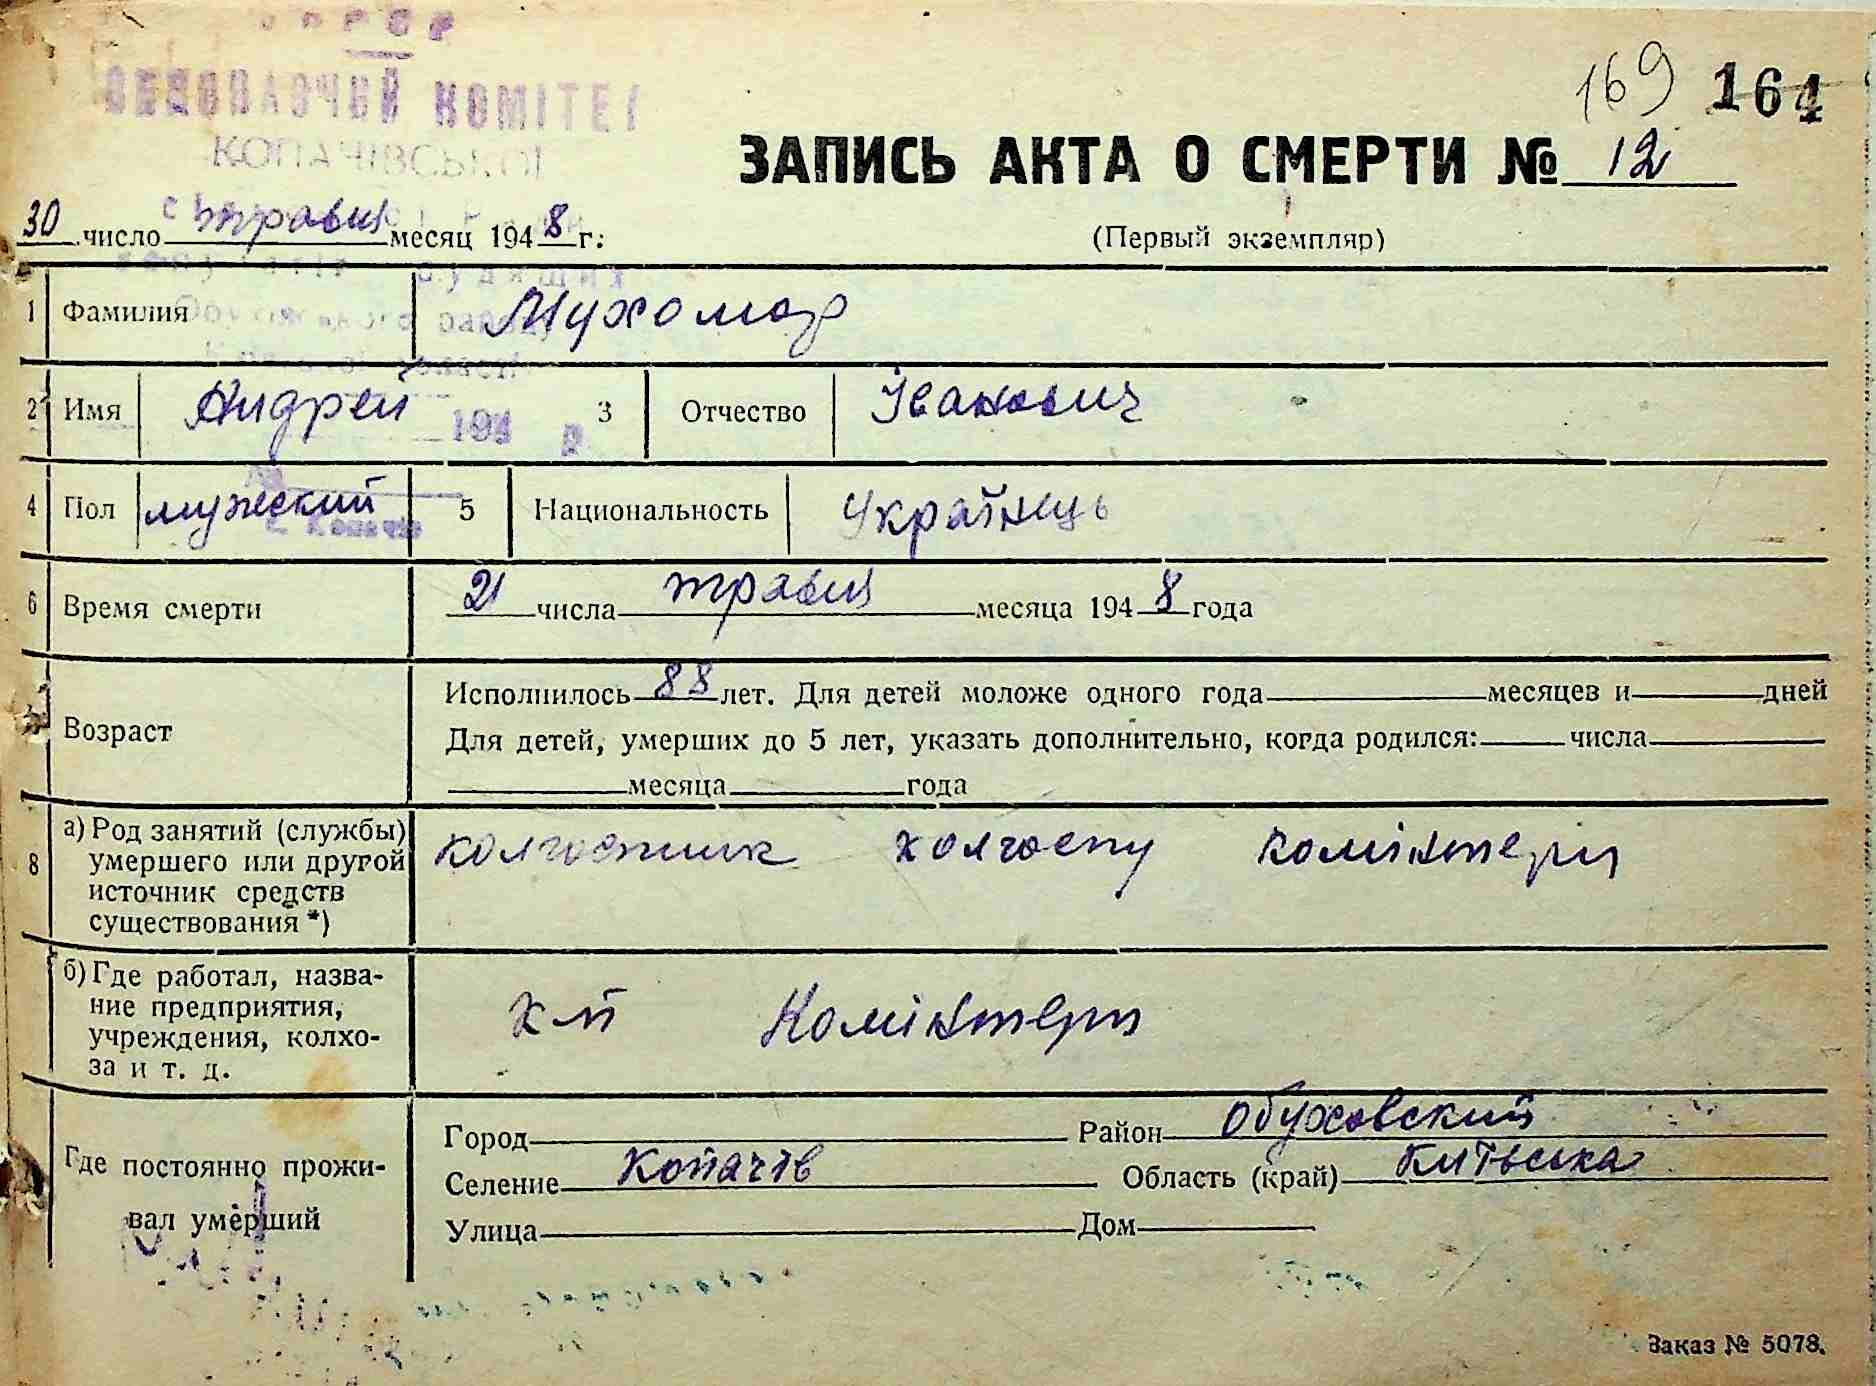 КОМІТЕТ
КОПАЧІВСЬКОЇ
169 164
ЗАПИСЬ АКТА О СМЕРТИ № 12
30 число травня месяц 1948 г.
(Первый экземпляр)
1 Фамилия Мухомор
2 Имя Андрей 3 Отчество Іванович
194 р
4 Пол мужеский 5 Национальность Українець
с. Копачів
6 Время смерти 21 числа травня месяца 1948 года
Возраст Исполнилось 88 лет. Для детей моложе одного года месяцев и дней
Для детей, умерших до 5 лет, указать дополнительно, когда родился: числа
месяца года
8 а) Род занятий (службы) умершего или другой источник средств существования *) колгоспник колгоспу комінтерн
б) Где работал, название предприятия, учреждения, колхоза и т. д. Комінтерн
Где постоянно проживал умерший
Город Район Обуховский
Селение Копачів Область (край) Київська
Улица Дом
Заказ № 5078.